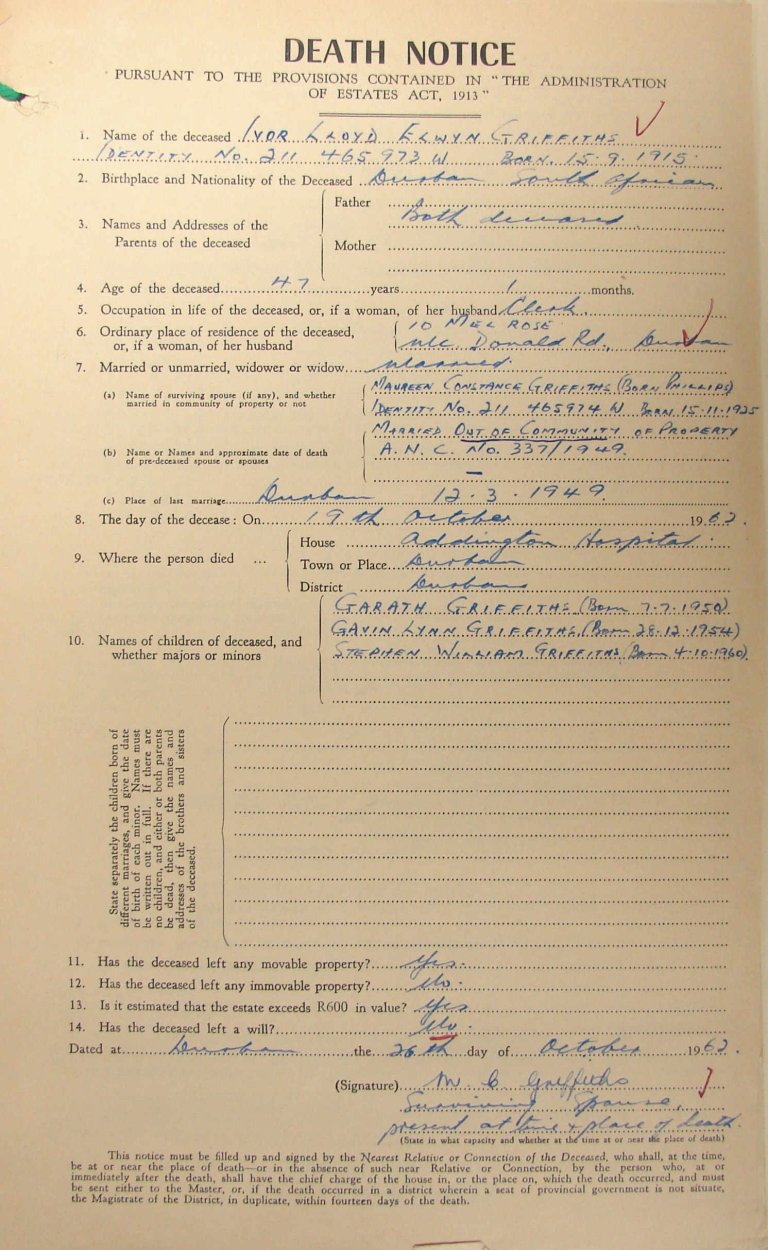 DEATH NOTICE
PURSUANT TO THE PROVISIONS CONTAINED IN "THE ADMINISTRATION
OF ESTATES ACT, 1913"
1. Name of the deceased IVOR LLOYD ELWYN GRIFFITHS
IDENTITY No. 211 465973 W BORN. 15.9.1915.
2. Birthplace and Nationality of the Deceased Durban South African
3. Names and Addresses of the Parents of the deceased
Father Both deceased
Mother
4. Age of the deceased 47 years 1 months.
5. Occupation in life of the deceased, or, if a woman, of her husband Clerk.
6. Ordinary place of residence of the deceased, or, if a woman, of her husband
10 MELROSE
Mc Donald Rd., Durban
7. Married or unmarried, widower or widow Married.
(a) Name of surviving spouse (if any), and whether married in community of property or not
MAUREEN CONSTANCE GRIFFITHS (BORN PHILLIPS)
IDENTITY No. 211 465974 W BORN 15-11-1925
MARRIED OUT OF COMMUNITY OF PROPERTY
(b) Name or Names and approximate date of death of pre-deceased spouse or spouses
A.N.C. No. 337/1949.
—
(c) Place of last marriage Durban 12.3.1949.
8. The day of the decease: On 19th October 1962.
9. Where the person died ...
House Addington Hospital.
Town or Place Durban
District Durban
10. Names of children of deceased, and whether majors or minors
GARATH GRIFFITHS (Born 7-7-1950)
GAVIN LYNN GRIFFITHS (Born 28-12-1954)
STEPHEN WILLIAM GRIFFITHS (Born 4-10-1960).
State separately the children born of
different marriages, and give the date
of birth of each minor. Names must
be written out in full. If there are
no children, and either or both parents
be dead, then give the names and
addresses of the brothers and sisters
of the deceased.
11. Has the deceased left any movable property? Yes.
12. Has the deceased left any immovable property? No.
13. Is it estimated that the estate exceeds R600 in value? Yes
14. Has the deceased left a will? No.
Dated at Durban the 26th day of October 1962.
(Signature) M. C. Griffiths
Surviving Spouse,
present at time & place of death.
(State in what capacity and whether at the time at or near the place of death)
This notice must be filled up and signed by the Nearest Relative or Connection of the Deceased, who shall, at the time,
be at or near the place of death—or in the absence of such near Relative or Connection, by the person who, at or
immediately after the death, shall have the chief charge of the house in, or the place on, which the death occurred, and must
be sent either to the Master, or, if the death occurred in a district wherein a seat of provincial government is not situate,
the Magistrate of the District, in duplicate, within fourteen days of the death.